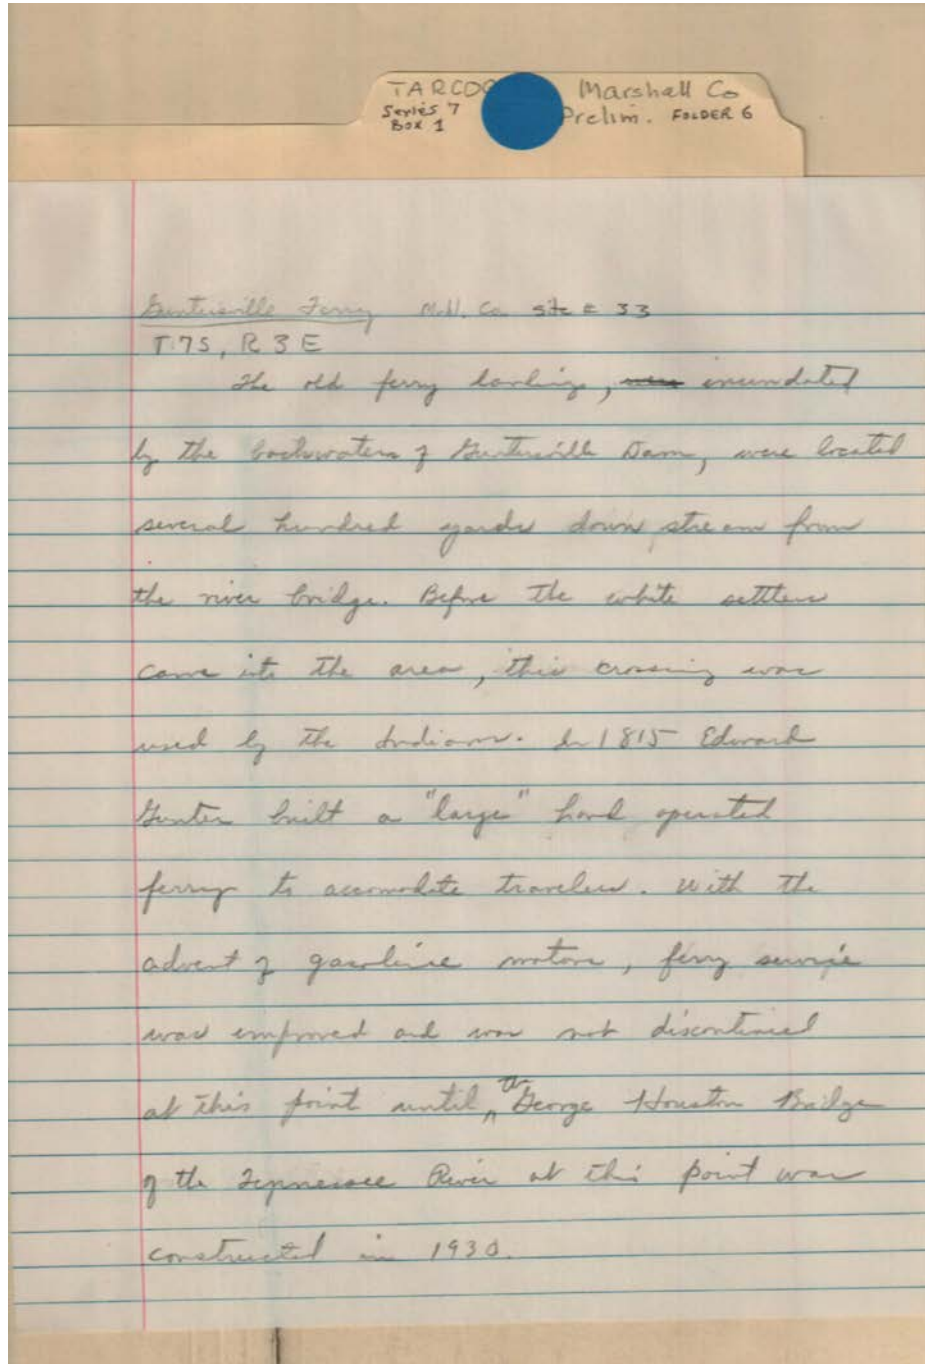 TARCOG Marshall Co
Series 7 Prelim. FOLDER 6
BOX 1
Guntersville Ferry Mshl. Co. site # 33
T.7S, R 3 E
The old ferry landings, were inundated
by the backwaters of Guntersville Dam, were located
several hundred yards down stream from
the river bridge. Before the white settlers
came into the area, this crossing was
used by the Indians. In 1815 Edward
Gunter built a "large" hand operated
ferry to accomodate travelers. With the
advent of gasoline motors, ferry service
was improved and was not discontinued
at this point until the George Houston Bridge
of the Tennessee River at this point was
constructed in 1930.